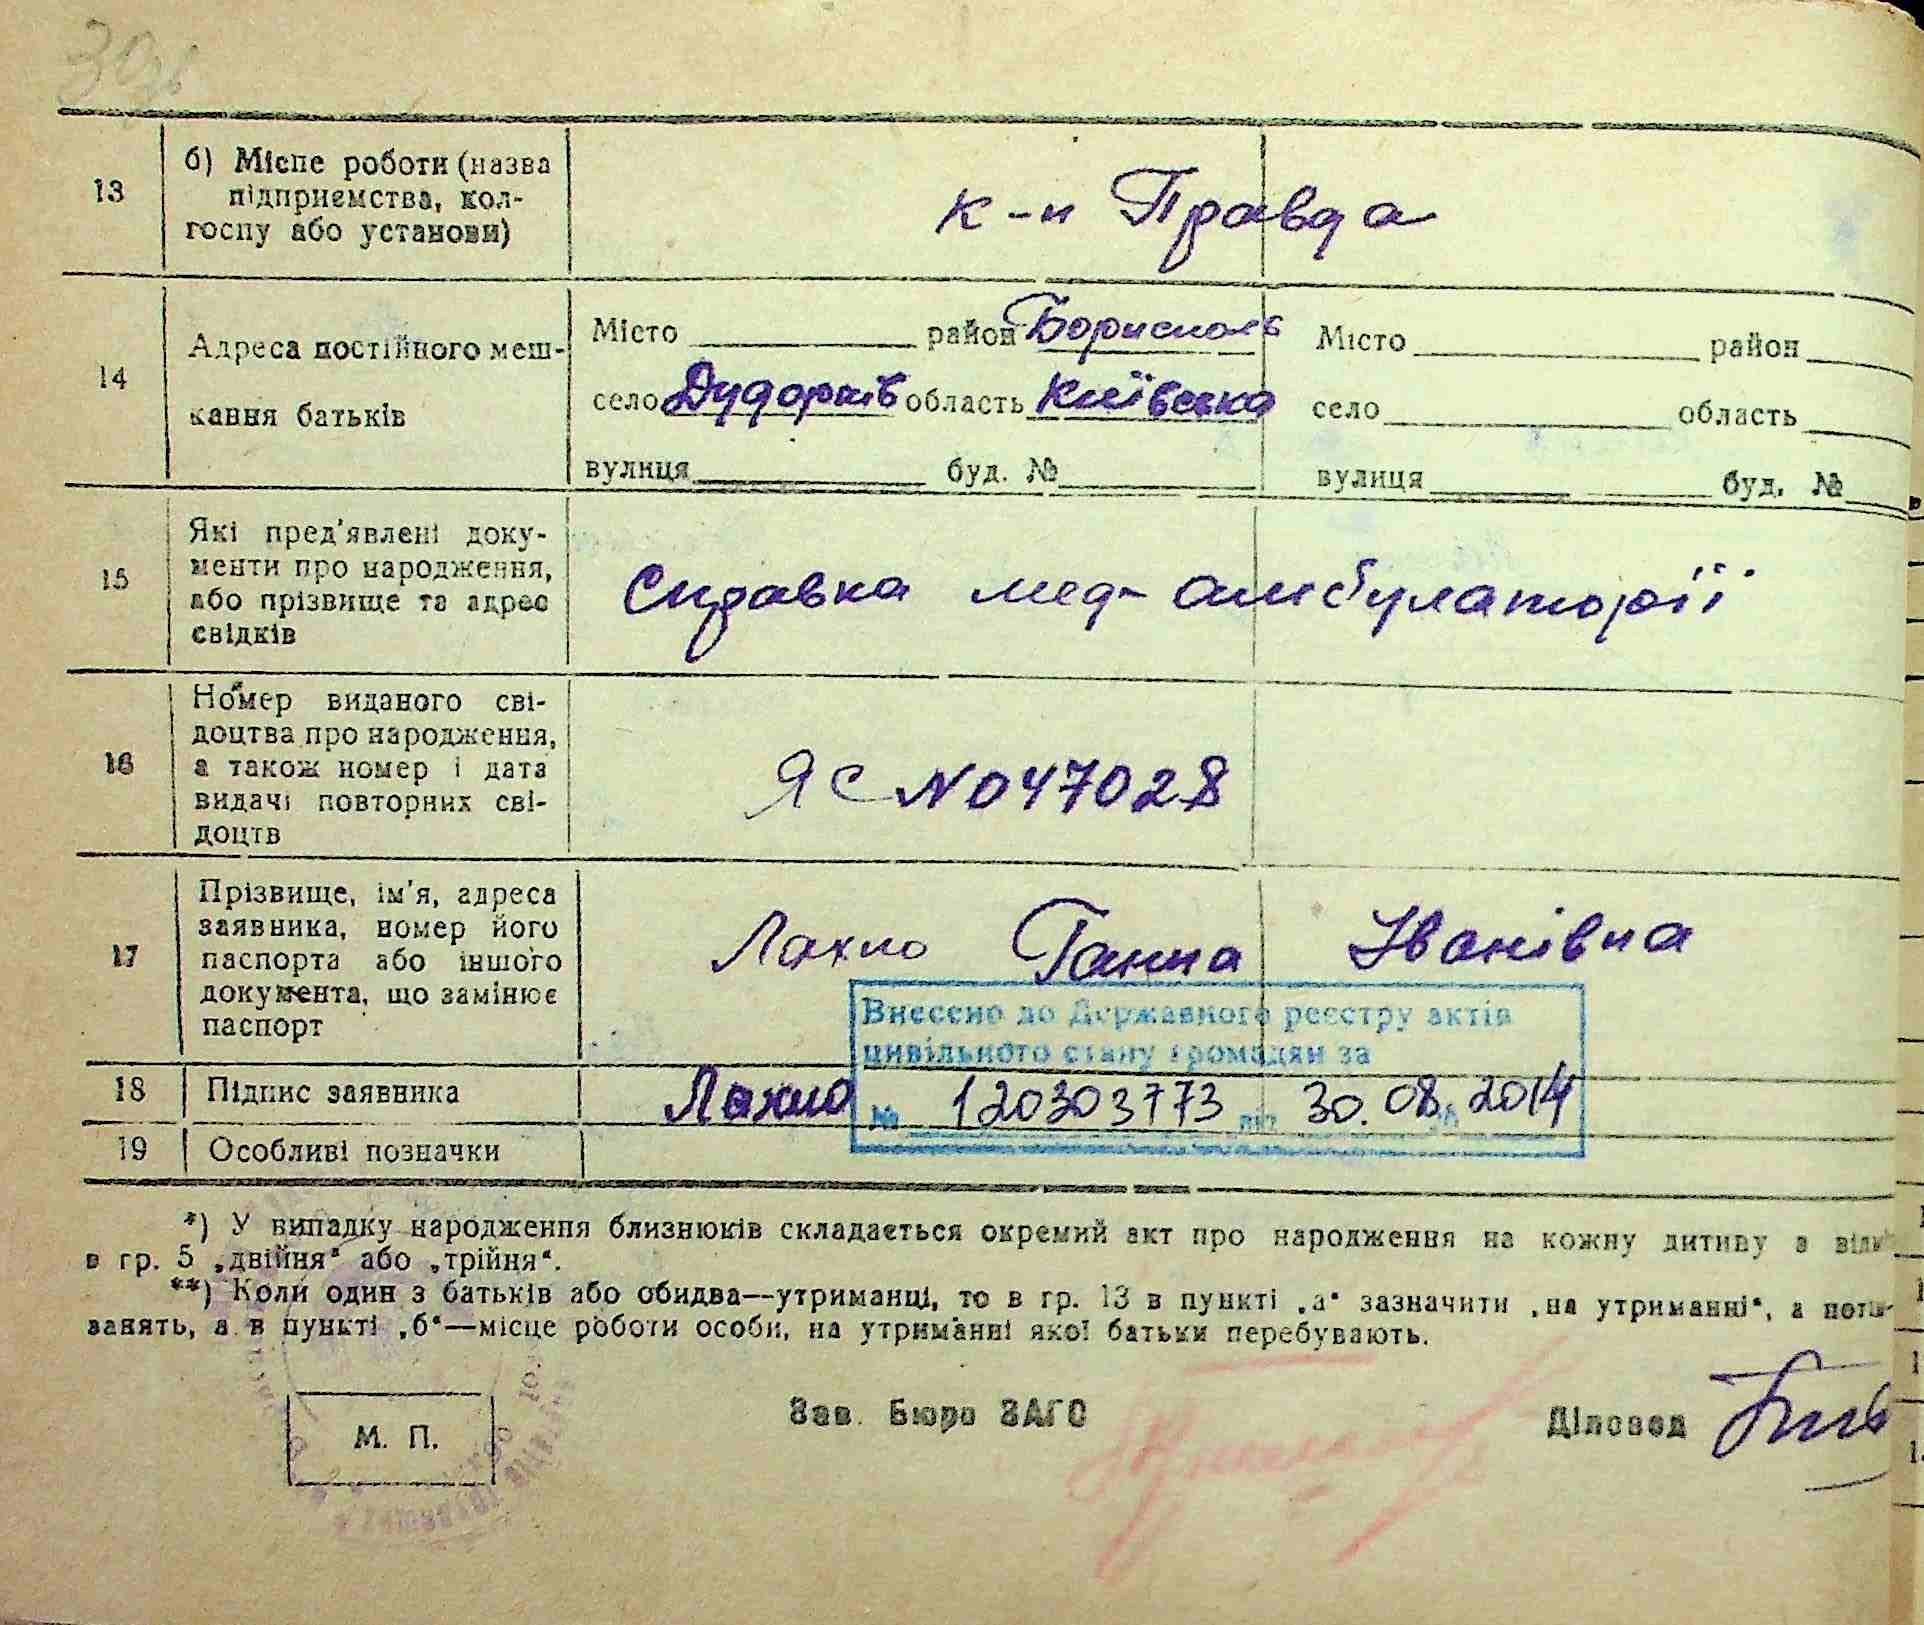 13
б) Місце роботи (назва
підприємства, кол-
госпу або установи)
к-п Правда
14
Адреса постійного меш-
кання батьків
Місто район Борисполь
село Дударків область Київська
вулиця буд. №
Місто район
село область
вулиця буд. №
15
Які пред'явлені доку-
менти про народження,
або прізвище та адрес
свідків
Справка мед-амбулаторії
16
Номер виданого сві-
доцтва про народження,
а також номер і дата
видачі повторних сві-
доцтв
ЯС №047028
17
Прізвище, ім'я, адреса
заявника, номер його
паспорта або іншого
документа, що замінює
паспорт
Лахно Ганна Іванівна
Внесено до Державного реєстру актів
цивільного стану громадян за
№ 120303773 від 30.08.2014
18
Підпис заявника
Лахно
19
Особливі позначки
*) У випадку народження близнюків складається окремий акт про народження на кожну дитину з
в гр. 5 „двійня“ або „трійня“.
**) Коли один з батьків або обидва—утриманці, то в гр. 13 в пункті „а“ зазначити „на утриманні“, а
занять, а в пункті „б“—місце роботи особи, на утриманні якої батьки перебувають.
М. П.
Зав. Бюро ЗАГС
Діловод